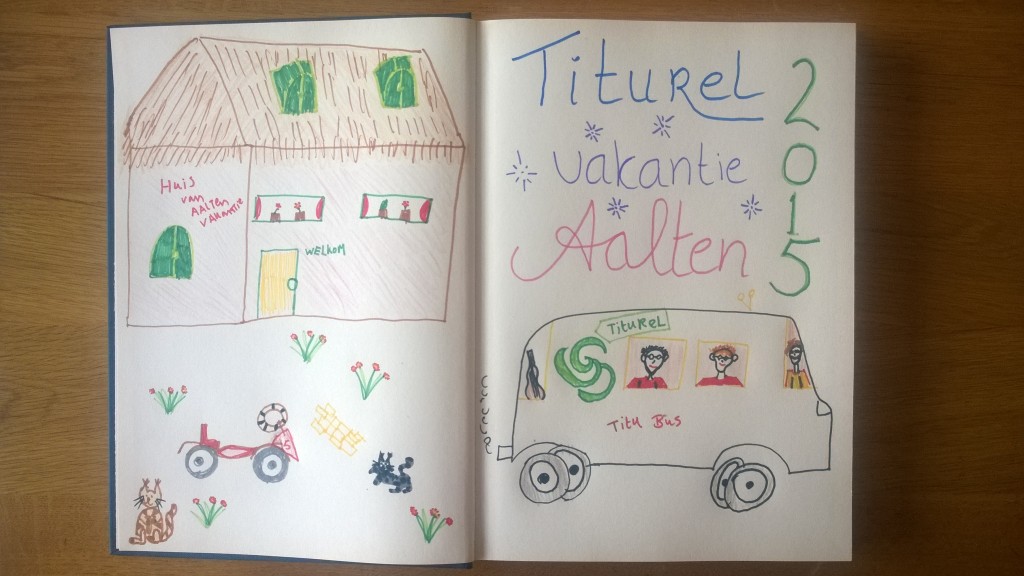 Huis
van
AALTEN
VAKANTIE
WELKOM
TituReL
vakantie
Aalten
2015
TituReL
Titu Bus